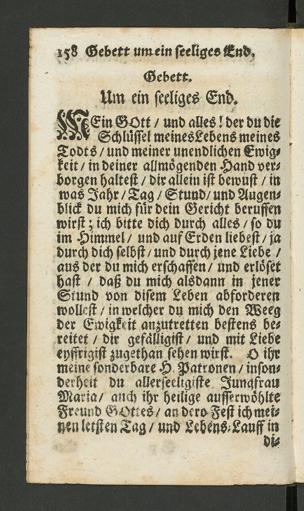 158 Gebett um ein seeliges End.
Gebett.
Um ein seeliges End.
MEin GOtt / und alles! der du die
Schlüssel meines Lebens meines
Todts / und meiner unendlichen Ewig-
keit / in deiner allmögenden Hand ver-
borgen haltest / dir allein ist bewust / in
was Jahr / Tag / Stund / und Augen-
blick du mich für dein Gericht beruffen
wirst; ich bitte dich durch alles / so du
im Himmel / und auf Erden liebest / ja
durch dich selbst / und durch jene Liebe /
aus der du mich erschaffen / und erlöset
hast / daß du mich alsdann in jener
Stund von disem Leben abforderen
wollest / in welcher du mich den Weeg
der Ewigkeit anzutretten bestens be-
reitet / dir gefälligist / und mit Liebe
eyffrigist zugethan sehen wirst. O ihr
meine sonderbare H. Patronen / inson-
derheit du allerseeligiste Jungfrau
Maria / auch ihr heilige ausserwöhlte
Freund GOttes / an dero Fest ich mei-
nen letsten Tag / und Lebens-Lauff in
di-